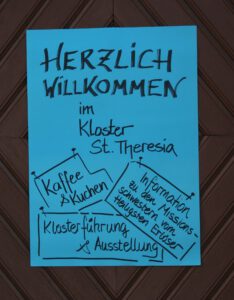 HERZLICH
WILLKOMMEN
im
Kloster
St. Theresia
Kaffee
& Kuchen
Information
zu den Missions-
schwestern vom
Heiligsten Erlöser
Klosterführung
& Ausstellung